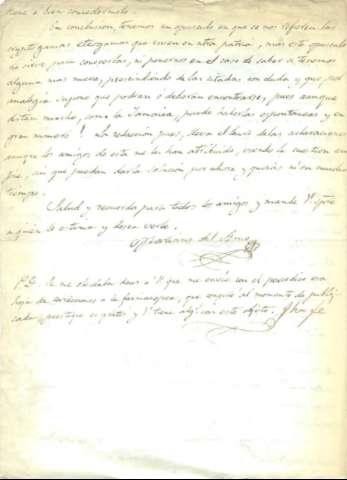 tiene a bien concedérmelo.
En conclusion, tenemos un opusculo en que se nos refieren las
criptogamas eterogamas que viven en nuestra patria, mas este opusculo
no sirve para conocerlas, ni ponernos en el caso de saber si tenemos
alguna mas nueva, prescindiendo de las citadas con duda y que por
analogia supone que podran ó deberan encontrarse, pues aunque
distan mucho, como la puede haberlas espontaneas y en
gran numero! La redaccion pues, lleva el de las aclaraciones
aunque los amigos de esta me las han atribuido, siendo la cuestion en
sin que puedan darla solucion por ahora y quizás ni en mucho
tiempo.
Salud y recuerdos para todos los amigos y mande V. siempre
á quien le estima y desea verle.
del Amo
P.D. Se me olvidaba decir á V. que me envie con el periodico una
hoja de á la farmacopea, que ofreció al momento de publi-
carla, puesto que es gratis y V. tiene alg. con este objeto.